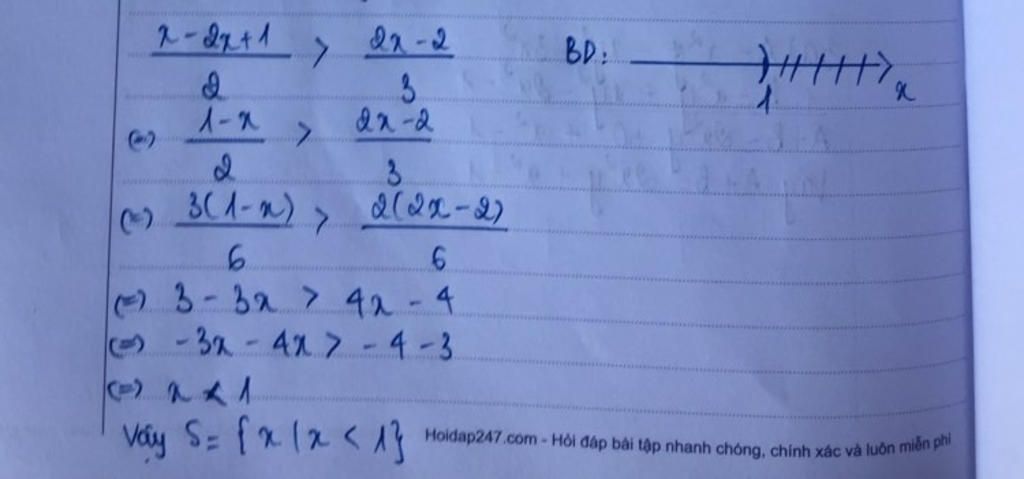 x - 2x + 1 / 2 > 2x - 2 / 3
BD: 1 x
(=) 1 - x / 2 > 2x - 2 / 3
(=) 3(1 - x) / 6 > 2(2x - 2) / 6
(=) 3 - 3x > 4x - 4
(=) -3x - 4x > -4 - 3
(=) x < 1
Vậy S = {x | x < 1}
Hoidap247.com - Hỏi đáp bài tập nhanh chóng, chính xác và luôn miễn phí